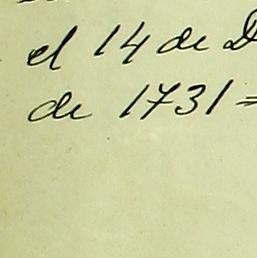 el 14 de D
de 1731=